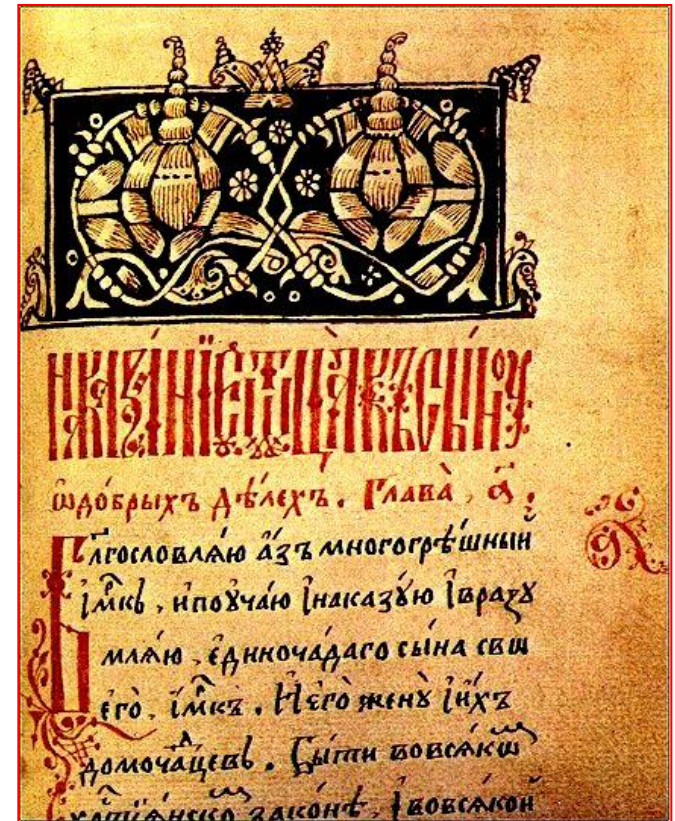 наказанїе ѿ ѿца къ сынꙋ
ѡдо́брыхъ дѣ́лехъ. Глава̀, а҃.
Блгословлѧ́ю а҆́зъ многогрѣ́шныи҆
і҆мкъ, ипоꙋча́ю і҆наказꙋ́ю і҆враꙁꙋ
млѧ́ю є҆диноча́даго сы́на сво
его̀. і҆мкъ. И҆его̀ женꙋ̀ і҆и́хъ
домоча́дцевъ. Бы́ти вовсѧко
хрⷭ҇тїѧ́нско законѣ, і҆вовсѧкой
а҃